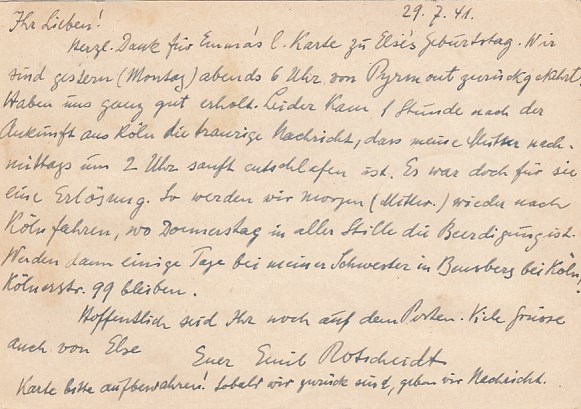 29.7.41.
Ihr Lieben!
Herzl. Dank für Emma's l. Karte zu Else's Geburtstag. Wir
sind gestern (Montag) abends 6 Uhr von Pyrmont zurückgekehrt.
Haben uns ganz gut erholt. Leider kam 1 Stunde nach der
Ankunft aus Köln die traurige Nachricht, dass meine Mutter nach-
mittags um 2 Uhr sanft entschlafen ist. Es war doch für sie
eine Erlösung. So werden wir morgen (Mittw.) wieder nach
Köln fahren, wo Donnerstag in aller Stille die Beerdigung ist.
Werden dann einige Tage bei meiner Schwester in Bensberg bei Köln,
Kölnerstr. 99 bleiben.
Hoffentlich seid Ihr noch auf dem Posten. Viele Grüsse
auch von Else Euer Emil Rotscheidt
Karte bitte aufbewahren! Sobald wir zurück sind, geben wir Nachricht.